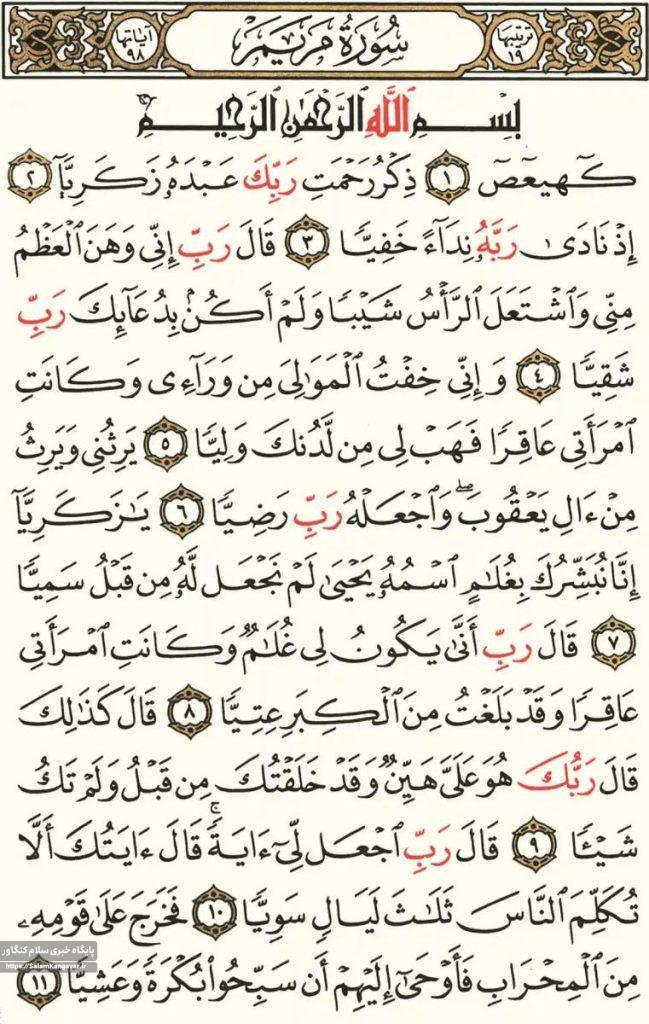 ترتيبها ١٩ سُورَةُ مَرْيَمَ آياتها ٩٨
بِسْمِ ٱللَّهِ ٱلرَّحْمَٰنِ ٱلرَّحِيمِ
كٓهيعٓصٓ ١ ذِكْرُ رَحْمَتِ رَبِّكَ عَبْدَهُۥ زَكَرِيَّآ ٢
إِذْ نَادَىٰ رَبَّهُۥ نِدَآءً خَفِيًّا ٣ قَالَ رَبِّ إِنِّى وَهَنَ ٱلْعَظْمُ
مِنِّى وَٱشْتَعَلَ ٱلرَّأْسُ شَيْبًا وَلَمْ أَكُنۢ بِدُعَآئِكَ رَبِّ
شَقِيًّا ٤ وَإِنِّى خِفْتُ ٱلْمَوَٰلِىَ مِن وَرَآءِى وَكَانَتِ
ٱمْرَأَتِى عَاقِرًا فَهَبْ لِى مِن لَّدُنكَ وَلِيًّا ٥ يَرِثُنِى وَيَرِثُ
مِنْ ءَالِ يَعْقُوبَ ۖ وَٱجْعَلْهُ رَبِّ رَضِيًّا ٦ يَٰزَكَرِيَّآ
إِنَّا نُبَشِّرُكَ بِغُلَٰمٍ ٱسْمُهُۥ يَحْيَىٰ لَمْ نَجْعَل لَّهُۥ مِن قَبْلُ سَمِيًّا
٧ قَالَ رَبِّ أَنَّىٰ يَكُونُ لِى غُلَٰمٌ وَكَانَتِ ٱمْرَأَتِى
عَاقِرًا وَقَدْ بَلَغْتُ مِنَ ٱلْكِبَرِ عِتِيًّا ٨ قَالَ كَذَٰلِكَ
قَالَ رَبُّكَ هُوَ عَلَىَّ هَيِّنٌ وَقَدْ خَلَقْتُكَ مِن قَبْلُ وَلَمْ تَكُ
شَيْـًٔا ٩ قَالَ رَبِّ ٱجْعَل لِّىٓ ءَايَةً ۚ قَالَ ءَايَتُكَ أَلَّا
تُكَلِّمَ ٱلنَّاسَ ثَلَٰثَ لَيَالٍ سَوِيًّا ١٠ فَخَرَجَ عَلَىٰ قَوْمِهِۦ
مِنَ ٱلْمِحْرَابِ فَأَوْحَىٰٓ إِلَيْهِمْ أَن سَبِّحُوا۟ بُكْرَةً وَعَشِيًّا ١١
پایگاه خبری سلام کنگاور
https://SalamKangavar.ir